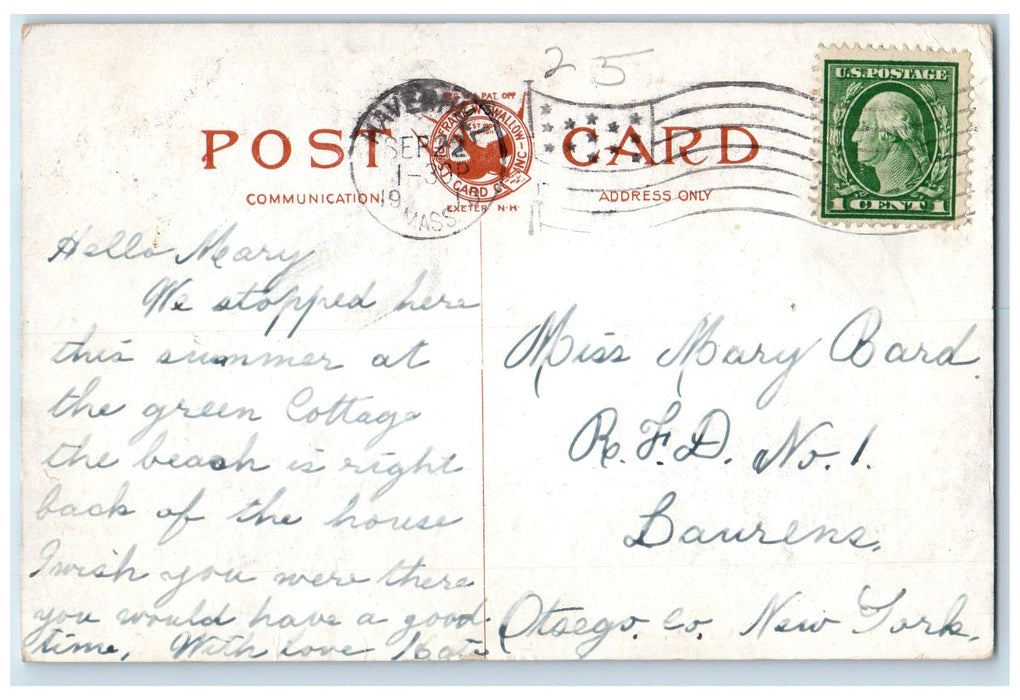 25
POST CARD
COMMUNICATION
ADDRESS ONLY
PAT. OFF
FRANK W. SWALLOW
POST CARD CO. INC
EXETER N.H.
HAVERHILL
SEP 22
1-30P
191
MASS
U.S. POSTAGE
1 CENT 1
Hello Mary
We stopped here
this summer at
the green Cottage
the beach is right
back of the house
I wish you were there
you would have a good
time, With love Kate
Miss Mary Bard
R.F.D. No. 1.
Laurens,
Otsego. Co. New York.